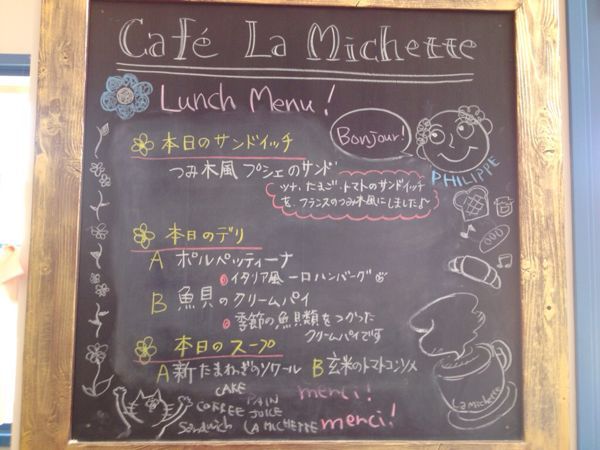 Café La Michette
Lunch Menu!
Bonjour!
PHILIPPE
本日のサンドイッチ
つみ木風 プシェのサンド
ツナ、たまご、トマトのサンドイッチ
を、フランスのつみ木風にしました♪
本日のデリ
A ポルペッティーナ
イタリア風 一口ハンバーグ
B 魚貝のクリームパイ
季節の魚貝類をつかった
クリームパイです
本日のスープ
A 新たまねぎのソワール B 玄米のトマトコンソメ
CAKE
COFFEE PAIN
JUICE
Sandwich LA MICHETTE
merci!
merci!
La michette